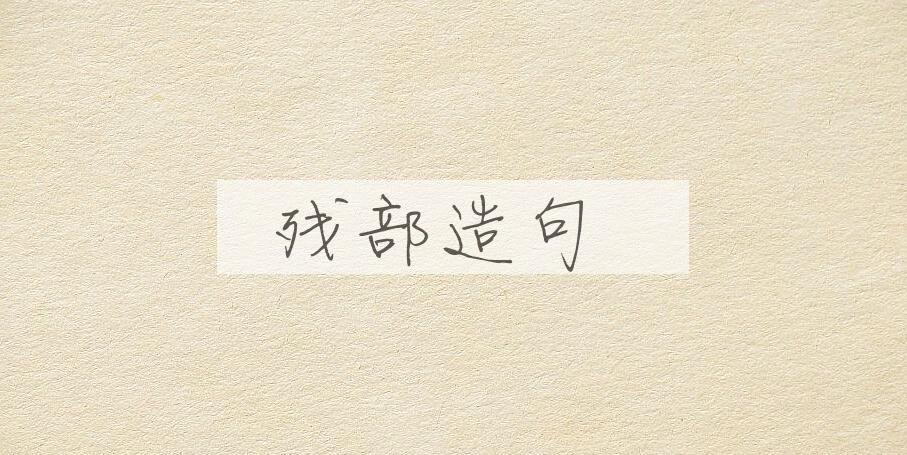 残部造句